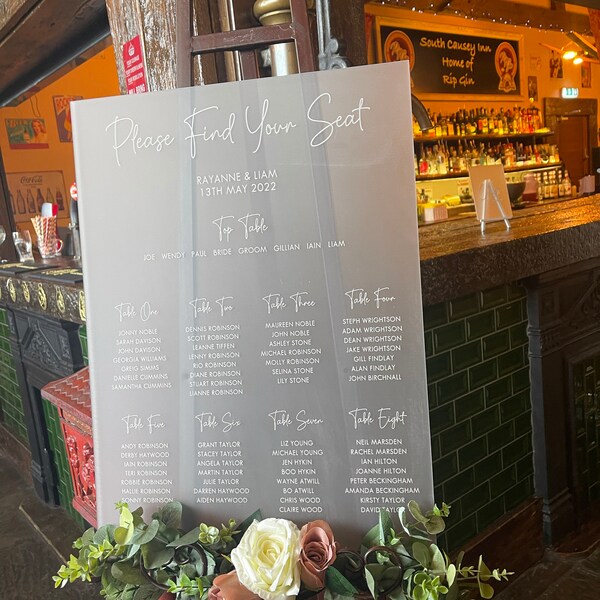 South Causey Inn
Home of
Rip Gin
Please Find Your Seat
RAYANNE & LIAM
13TH MAY 2022
Top Table
JOE WENDY PAUL BRIDE GROOM GILLIAN IAIN LIAM
Table One
JONNY NOBLE
SARAH DAVISON
JOHN DAVISON
GEORGIA WILLIAMS
GREIG SIMMS
DANIELLE CUMMINS
SAMANTHA CUMMINS
Table Two
DENNIS ROBINSON
SCOTT ROBINSON
LEANNE TIFFEN
LENNY ROBINSON
RIO ROBINSON
DIANE ROBINSON
STUART ROBINSON
LIANNE ROBINSON
Table Three
MAUREEN NOBLE
JOHN NOBLE
ASHLEY STONE
MICHAEL ROBINSON
MOLLY ROBINSON
SELINA STONE
LILY STONE
Table Four
STEPH WRIGHTSON
ADAM WRIGHTSON
DEAN WRIGHTSON
JAKE WRIGHTSON
GILL FINDLAY
ALAN FINDLAY
JOHN BIRCHNALL
Table Five
ANDY ROBINSON
DERBY HAYWOOD
IAIN ROBINSON
TERI ROBINSON
ROBBIE ROBINSON
HALLIE ROBINSON
BONNY ROBINSON
Table Six
GRANT TAYLOR
STACEY TAYLOR
ANGELA TAYLOR
MARTIN TAYLOR
JULIE TAYLOR
DARREN HAYWOOD
AIDEN HAYWOOD
Table Seven
LIZ YOUNG
MICHAEL YOUNG
JEN HYKIN
BOO HYKIN
WAYNE ATWILL
BO ATWILL
CHRIS WOOD
CLAIRE WOOD
Table Eight
NEIL MARSDEN
RACHEL MARSDEN
IAN HILTON
JOANNE HILTON
PETER BECKINGHAM
AMANDA BECKINGHAM
KIRSTY TAYLOR
DAVID TAYLOR